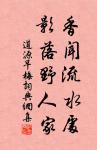 香聞流水處
影落野人家
道源早梅詞典網集